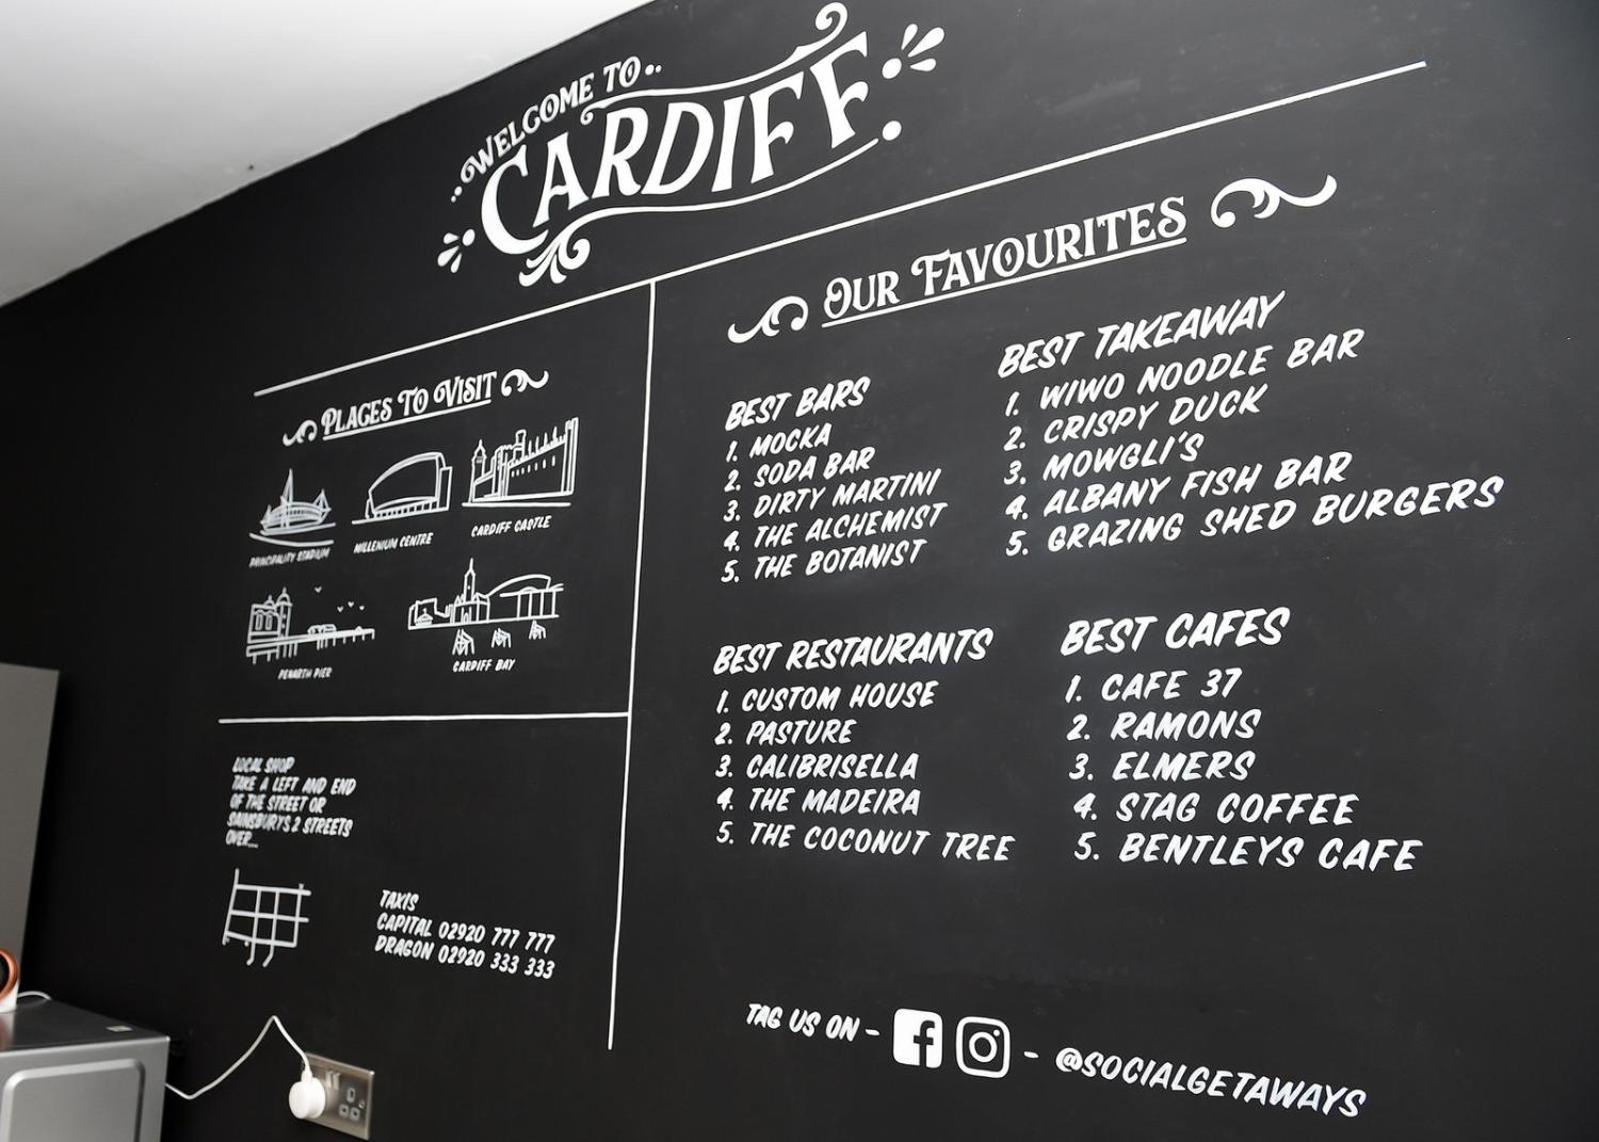 WELCOME TO..
CARDIFF
PLACES TO VISIT
PRINCIPALITY STADIUM
MILLENIUM CENTRE
CARDIFF CASTLE
PENARTH PIER
CARDIFF BAY
LOCAL SHOP
TAKE A LEFT AND END
OF THE STREET OR
SAINSBURYS 2 STREETS
OVER...
TAXIS
CAPITAL 02920 777 777
DRAGON 02920 333 333
OUR FAVOURITES
BEST BARS
1. MOCKA
2. SODA BAR
3. DIRTY MARTINI
4. THE ALCHEMIST
5. THE BOTANIST
BEST TAKEAWAY
1. WIWO NOODLE BAR
2. CRISPY DUCK
3. MOWGLI'S
4. ALBANY FISH BAR
5. GRAZING SHED BURGERS
BEST RESTAURANTS
1. CUSTOM HOUSE
2. PASTURE
3. CALIBRISELLA
4. THE MADEIRA
5. THE COCONUT TREE
BEST CAFES
1. CAFE 37
2. RAMONS
3. ELMERS
4. STAG COFFEE
5. BENTLEYS CAFE
TAG US ON - f - @SOCIALGETAWAYS